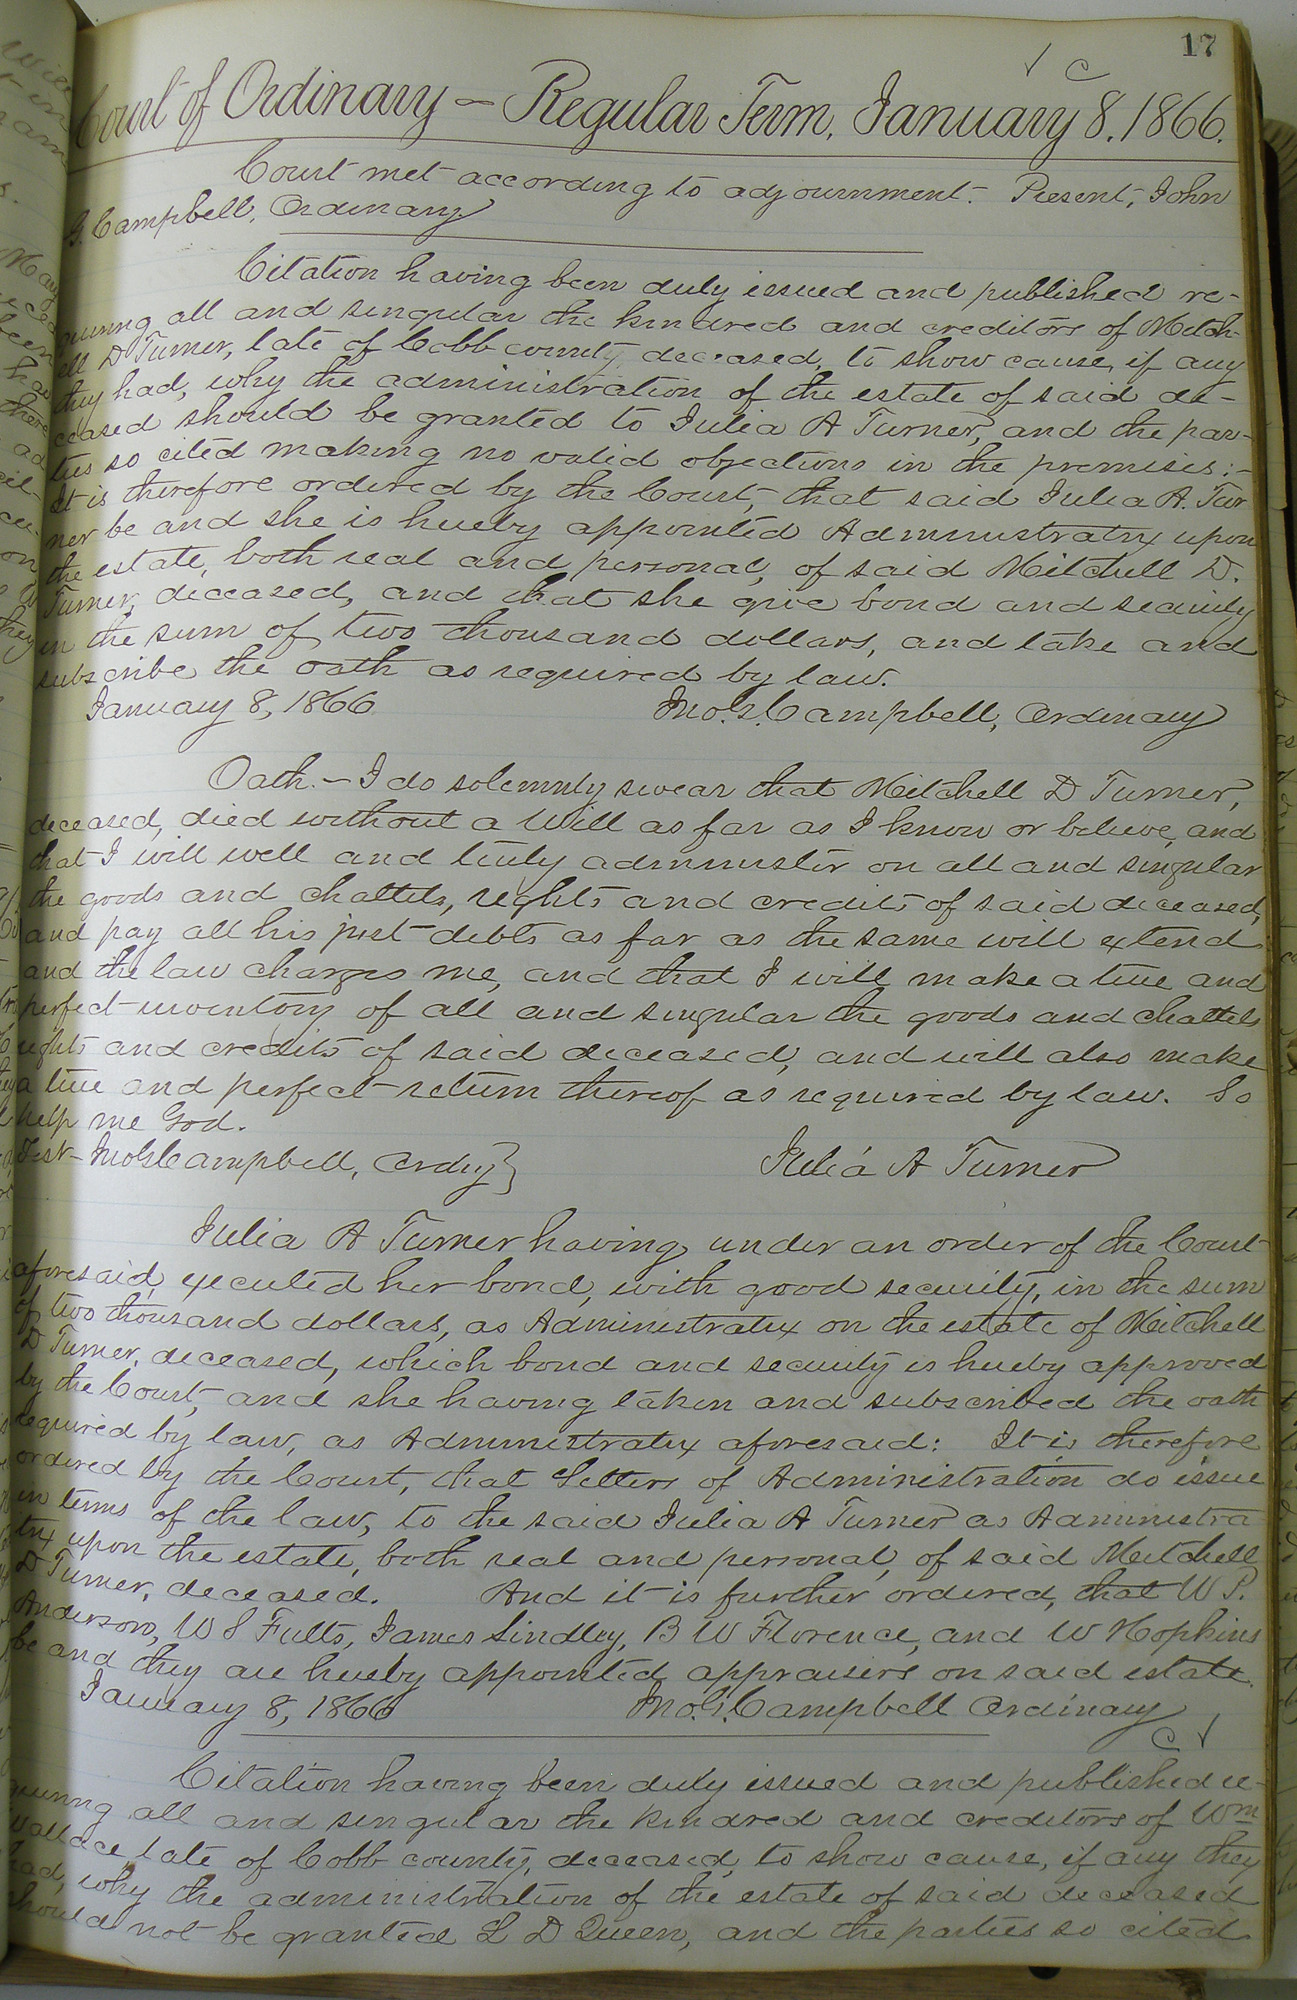 17
Court of Ordinary — Regular Term, January 8, 1866.
Court met according to adjournment. Present, John
G. Campbell, Ordinary
Citation having been duly issued and published re-
quiring all and singular the kindred and creditors of Mitch-
ell D Turner, late of Cobb county, deceased, to show cause, if any
they had, why the administration of the estate of said de-
ceased should be granted to Julia A Turner, and the par-
ties so cited making no valid objections in the premises:-
It is therefore ordered by the Court, that said Julia A. Tur
ner be and she is hereby appointed Administratrix upon
the estate, both real and personal, of said Mitchell D.
Turner, deceased, and that she give bond and security
in the sum of two thousand dollars, and take and
subscribe the oath as required by law.
January 8, 1866 Jno. G. Campbell, Ordinary
Oath.— I do solemnly swear that Mitchell D Turner,
deceased, died without a Will as far as I know or believe, and
that I will well and truly administer on all and singular
the goods and chattels, rights and credits of said deceased,
and pay all his just debts as far as the same will extend
and the law charges me, and that I will make a true and
perfect inventory of all and singular the goods and chattels
rights and credits of said deceased, and will also make
a true and perfect return thereof as required by law. So
help me God.
Test- Jno G Campbell, Ordny } Julia A Turner
Julia A Turner having under an order of the Court
aforesaid, executed her bond, with good security, in the sum
of two thousand dollars, as Administratrix on the estate of Mitchell
D Turner, deceased, which bond and security is hereby approved
by the Court, and she having taken and subscribed the oath
required by law, as Administratrix aforesaid: It is therefore
ordered by the Court, that Letters of Administration do issue
in terms of the law, to the said Julia A Turner as Administra
trix upon the estate, both real and personal, of said Mitchell
D Turner, deceased. And it is further ordered, that W P.
Anderson, W S Fults, James Lindley, B W Florence, and W Hopkins
be and they are hereby appointed appraisers on said estate.
January 8, 1866 Jno. G. Campbell Ordinary
Citation having been duly issued and published re-
quiring all and singular the kindred and creditors of Wm
Wallace late of Cobb county, deceased, to show cause, if any they
had, why the administration of the estate of said deceased
should not be granted L D Queen, and the parties so cited